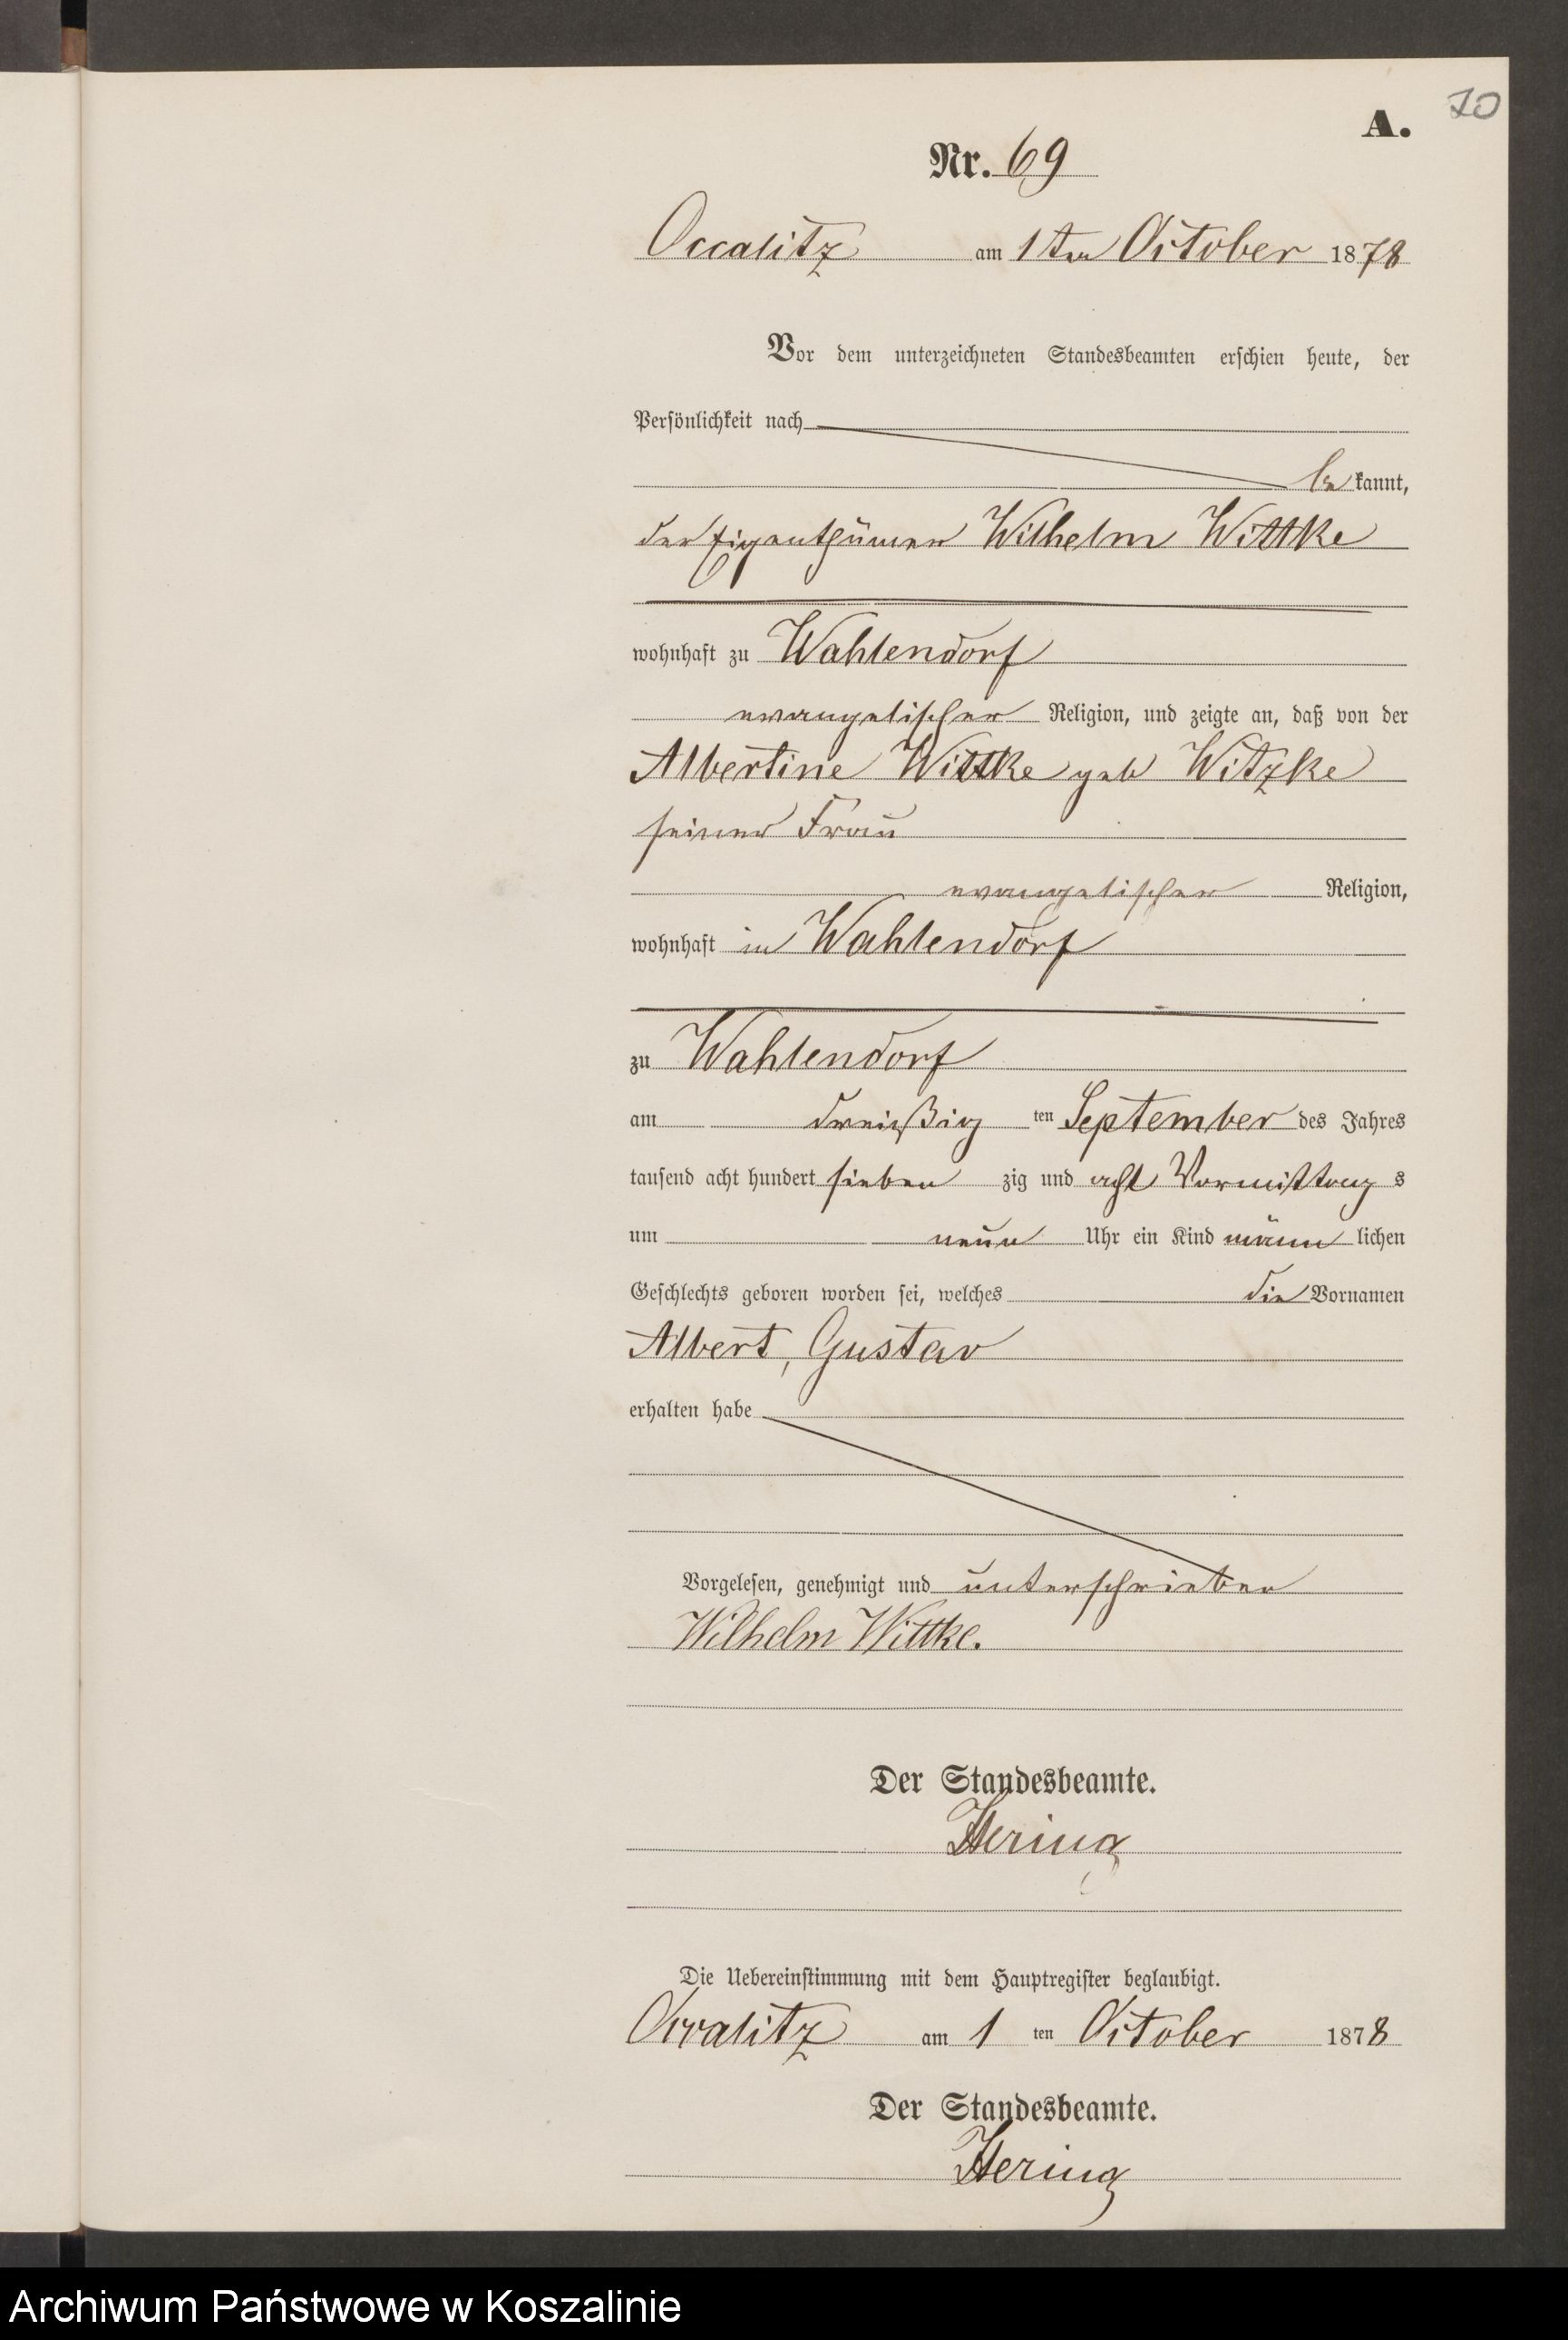 70
A.
Nr. 69
Occalitz am 1ten October 1878
Vor dem unterzeichneten Standesbeamten erschien heute, der
Persönlichkeit nach
be kannt,
der Eigenthümer Wilhelm Wittke
wohnhaft zu Wahlendorf
evangelischer Religion, und zeigte an, daß von der
Albertine Wittke geb Witzke
seiner Frau
evangelischer Religion,
wohnhaft in Wahlendorf
zu Wahlendorf
am dreißig ten September des Jahres
tausend acht hundert sieben zig und acht Vormittag s
um neun Uhr ein Kind männ lichen
Geschlechts geboren worden sei, welches die Vornamen
Albert, Gustav
erhalten habe
Vorgelesen, genehmigt und unterschrieben
Wilhelm Wittke.
Der Standesbeamte.
Hering
Die Uebereinstimmung mit dem Hauptregister beglaubigt.
Occalitz am 1 ten October 1878
Der Standesbeamte.
Hering
Archiwum Państwowe w Koszalinie